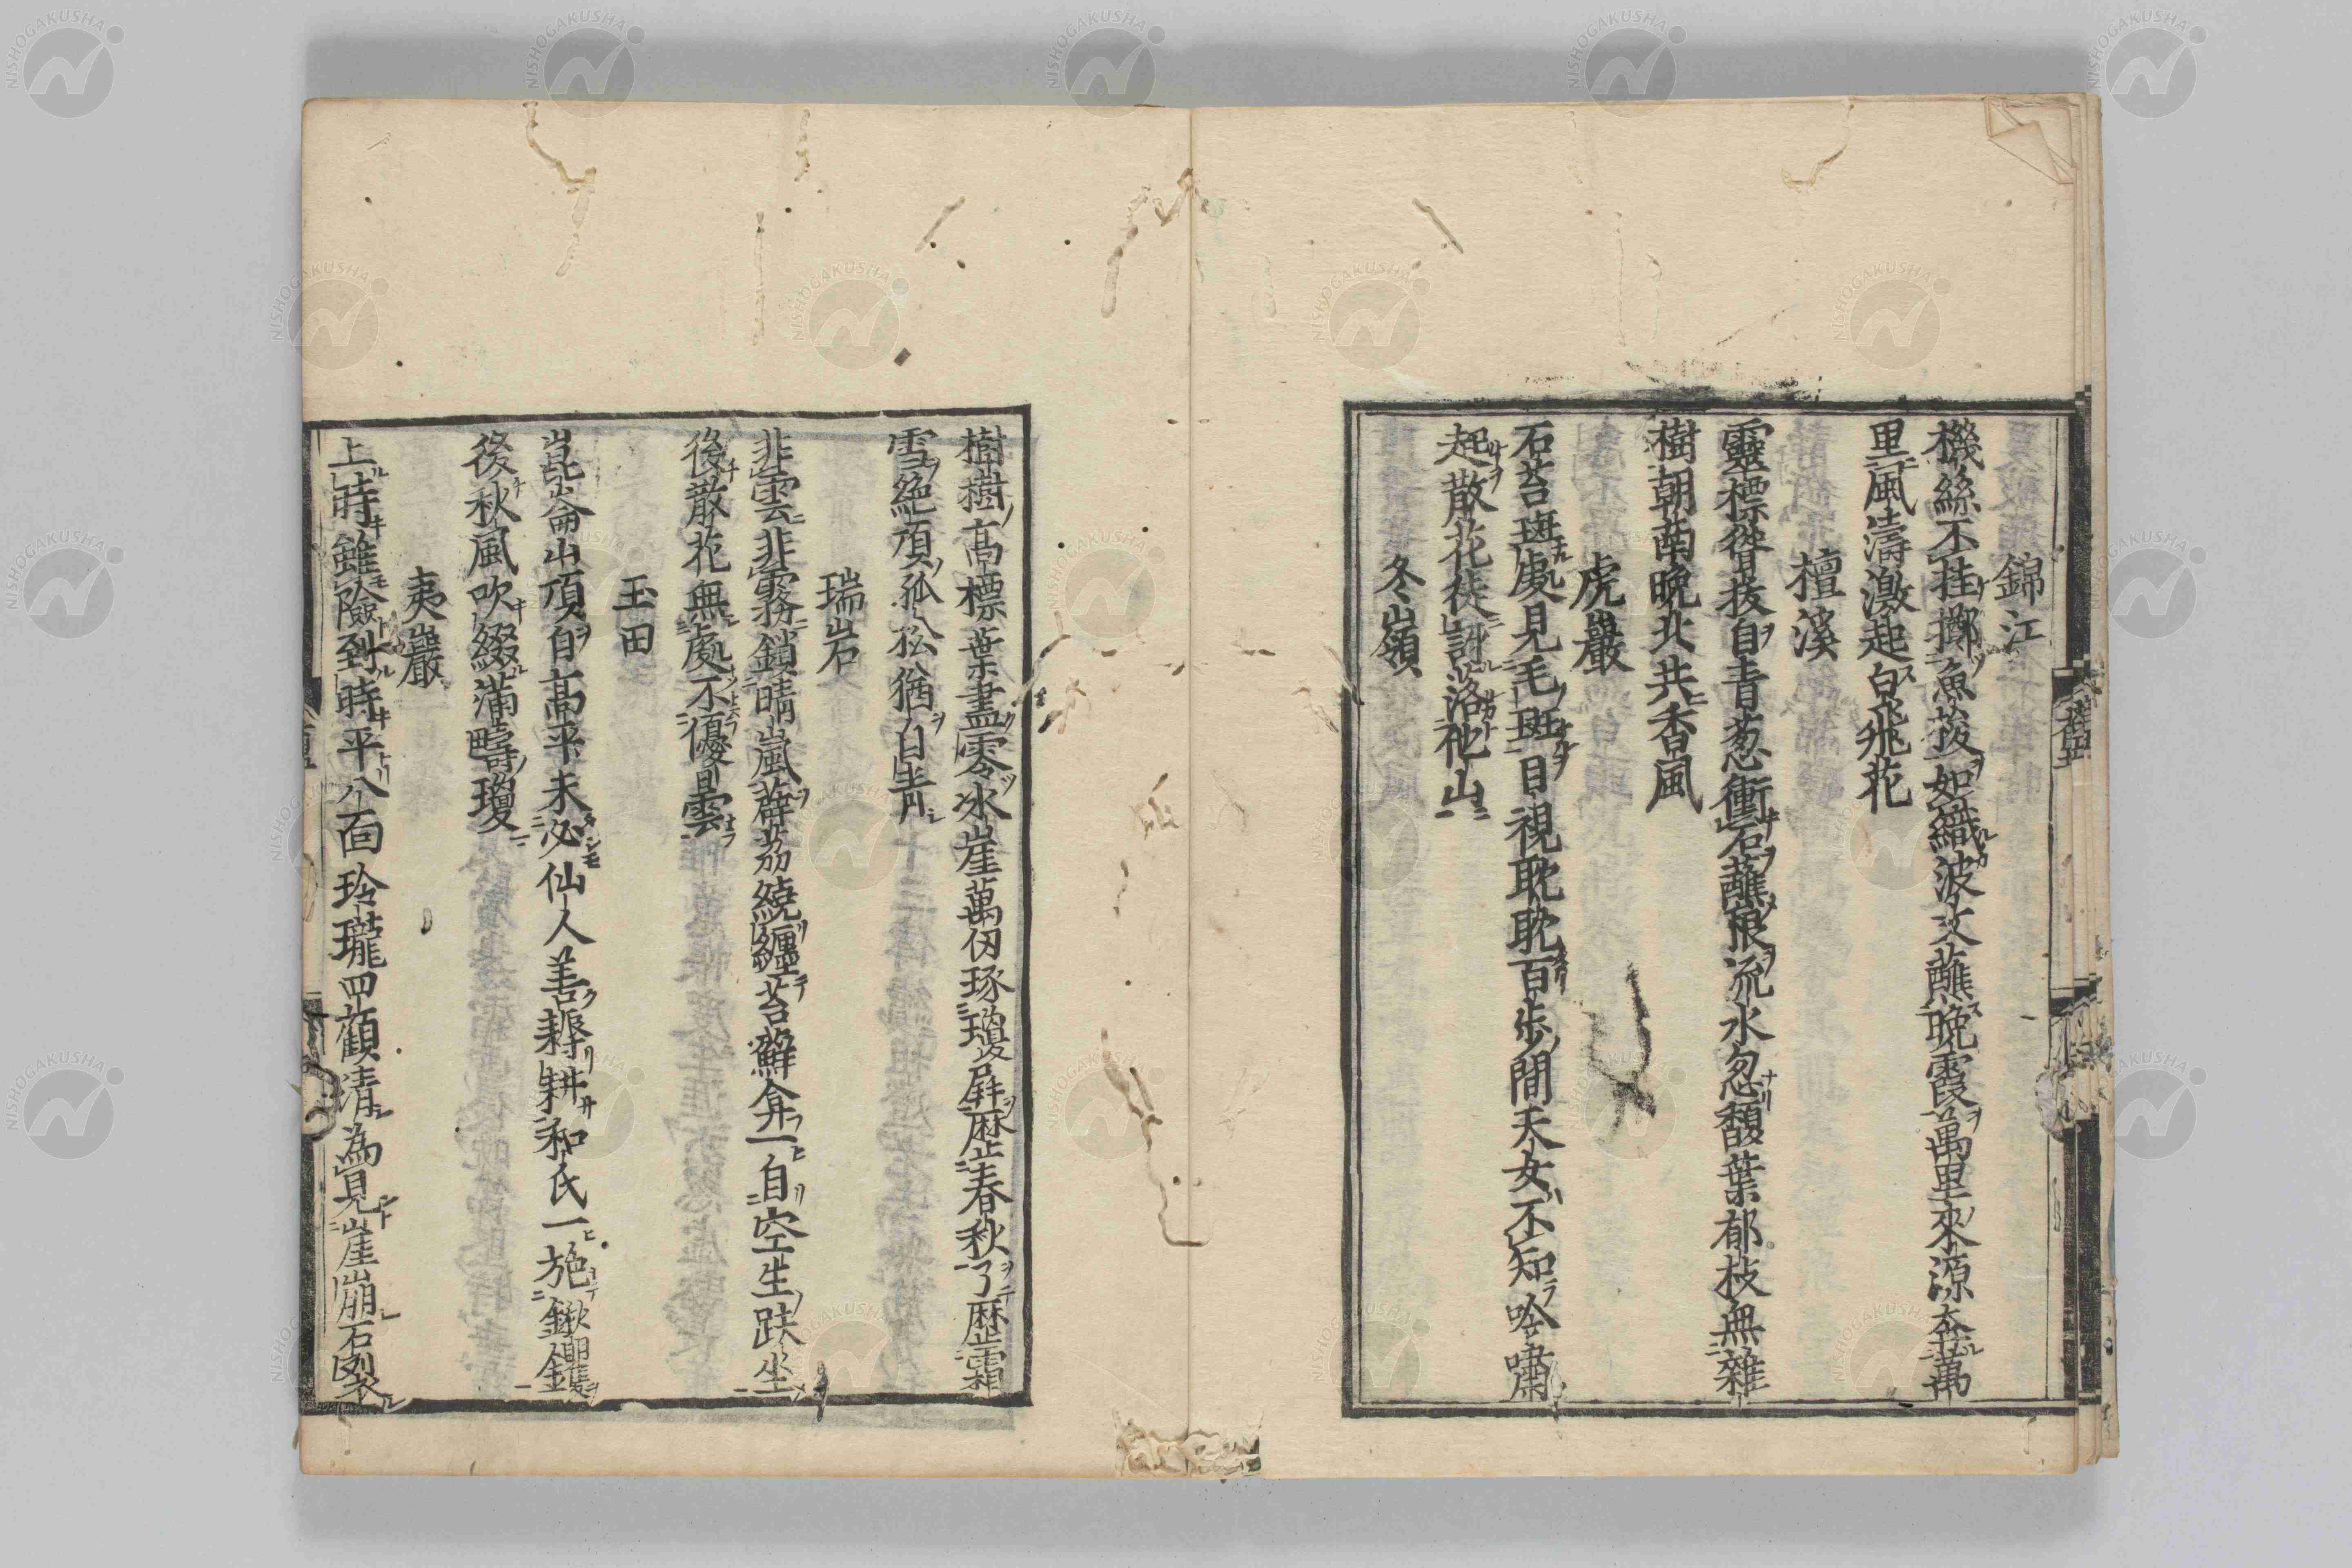 錦江
機絲不挂擲魚莈如織波文蘸晚霞萬里來源奔萬
里風濤激起白飛花
檀溪
靈標聳拔自青葱衝石蘸痕流水忽馥葉郁枝無雜
樹朝菌晚北共香風
虎巖
石苔斑處見毛斑目視耽耽百步間天女不知吟嘯
起散花徒訝落他山
冬嶺
樹樹高標葉盡零冰崖萬仞琢瓊屏歷春秋了歷霜
雪絕頂孤松猶自青
瑞岩
非雲非霧鎖晴嵐薜荔繞纏苔蘚弇一自空生趺坐
後散花無處不優曇
玉田
崑崙山頂自高平未必仙人善耨耕和氏一施鍬钁
後秋風吹綴滿疇瓊
夷巖
上時雖險到時平八面玲瓏四顧清為見崖崩石裂